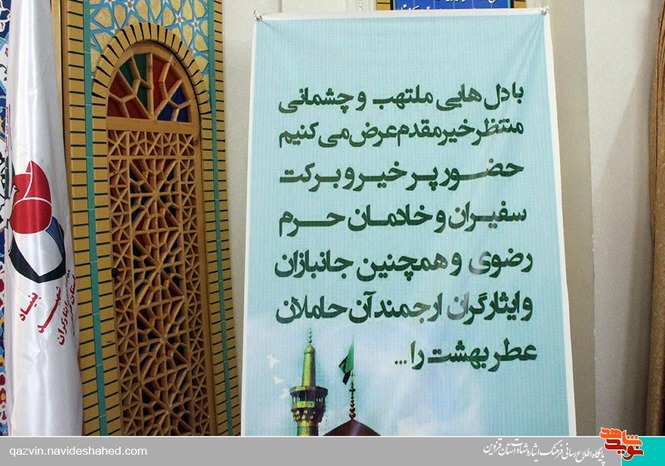 با دل هایی ملتهب و چشمانی
منتظر خیر مقدم عرض می کنیم
حضور پر خیر و برکت
سفیران و خادمان حرم
رضوی و همچنین جانبازان
و ایثارگران ارجمند آن حاملان
عطر بهشت را...
بنیاد
شهید
qazvin.navideshahed.com
پایگاه اطلاع رسانی فرهنگ ایثار و شهادت استان قزوین
نوید شاهد